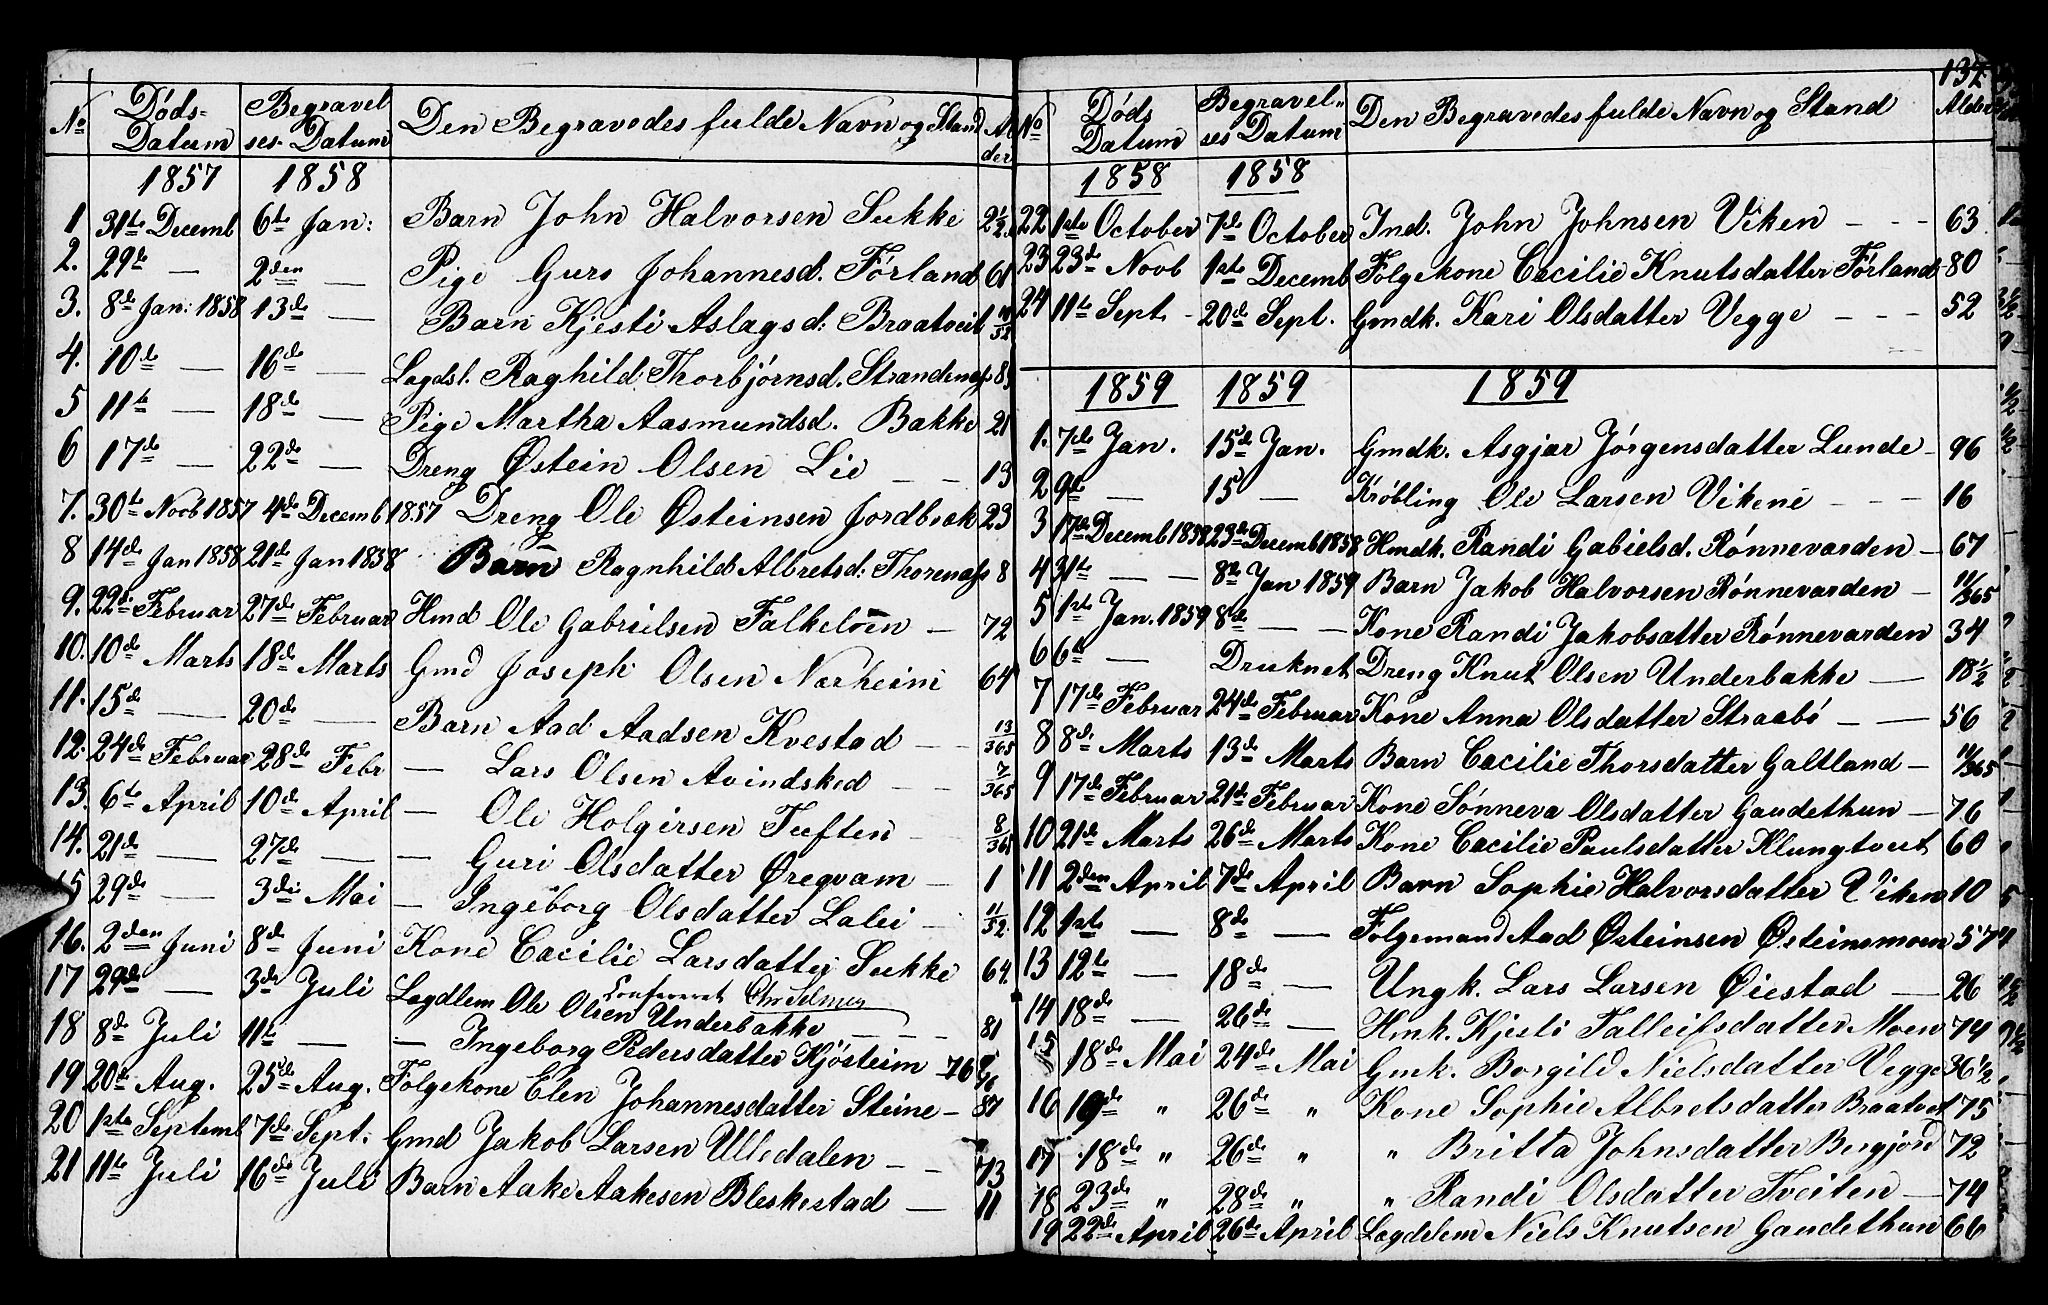 No Döds- Datum Begravel ses- Datum Den Begravedes fulde Navn og Stand Al der
1857 1858
1 31te Decemb 6te Jan: Barn John Halvorsen Sukke 2½
2. 29de — 2den — Pige Guro Johannesd. Förland 61
3. 8de Jan: 1858 13de — Barn Kjesti Aslagsd: Braatveit
4. 10de — 16de — Lagdsl. Raghild Thorbjörnsd. Strandenæs
5 11te — 18de — Pige Martha Aasmundsd. Bakke 21
6 17de — 22de — Dreng Østein Olsen Lie — — 13
7. 30te Novb 1857 4de Decemb 1857 Dreng Ole Østeinsen Jordbræk 23
8 14de Jan 1858 21de Jan 1858 Barn Ragnhild Albretsd: Thorenæs 8
9. 22de Februar 27de Februar Hmd Ole Gabrielsen Falkeloen — 72
10. 10de Marts 18de Marts Gmd Joseph Olsen Norheim 64
11. 15de — 20de — Barn Aad Aadsen Kvestad — — 13/365
12. 24de Februar 28de Febr — Lars Olsen Avindsked — — 7/365
13. 6te April 10de April — Ole Holgirsen Tuften — 8/365
14. 21de — 27de — — Guri Olsdatter Øregvam — 1
15 29de — 3die Mai — Ingeborg Olsdatter Lalei — 11/52
16. 2den Juni 8de Juni Kone Cecilie Larsdatter Sukke 64.
17 29de — 3de Juli Lagdlem Ole Olsen Underbakke — — — 81
Confereret Chr Selmer
18 8de Juli 11te — — Ingeborg Pedersdatter Kjösteim 76
19 20de Aug. 25de Aug. Folgekone Elen Johannesdatter Steine — 87
20 1ste Septemb 7de Sept. Gmd Jakob Larsen Ulledalen — — 73
21 11te Juli 16de Juli Barn Aake Aakesen Bleskestad — 11
No Döds Datum Begravel" ses Datum Den Begravedes fulde Navn og Stand Alder
1858 1858
22 1ste October 7de October Ind. John Johnsen Viken — — — 63
23 23de Novb 1ste Decemb Folgekone Cecilie Knutsdatter Förland 80
24 11te Sept. — 20de Sept. Gmdk. Kari Olsdatter Vegge — — — 52
1859 1859 1859
1. 7de Jan. 15de Jan. Gmdk. Asgjær Jörgensdatter Lunde — 96
2 9de — 15 — Kröbling Ole Larsen Vikene — — — 16
3 17de Decemb 1858 23de Decemb 1858 Hmdk. Randi Gabielsd. Rönnevarden — 67
4 31te — — 8de Jan 1859 Barn Jakob Halvorsen Rönnevarden — 11/365
5 1ste Jan. 1859 8de — — Kone Randi Jakobsatter Rönnevarden 34
6 6te — Druknet Dreng Knut Olsen Underbakke — 18½
7 17de Februar 24de Februar Kone Anna Olsdatter Straabö — — 56
8 8de Marts 13de Marts Barn Cecilie Thorsdatter Galtland — 11/365
9 17de Februar 21de Februar Kone Sönneva Olsdatter Gaudethun — 76
10 21de Marts 26de Marts Kone Cecilie Paulsdatter Klungtveit 60
11 2den April 7de April Barn Sophie Halvorsdatter Viken 10
12 1ste — 8de — Folgemand Aad Østeinsen Østeinsmoen 57
13 12te — 18de — Ungk. Lars Larsen Øiestad — 26
14 18de — 26de — Hmk. Kjesti Talleifsdatter Moen 74
15 18de Mai 24de Mai Gmk. Borgild Nielsdatter Vegge 36½
16 19de " 26de " Kone Sophie Albretsdatter Braatveit 75
17 18de " 26de " " Britta Johnsdatter Bergjord 72
18 23de " 28de " " Randi Olsdatter Tveiten — 74
19 22de April 26de April Lagdelem Niels Knutsen Gaudethun 66